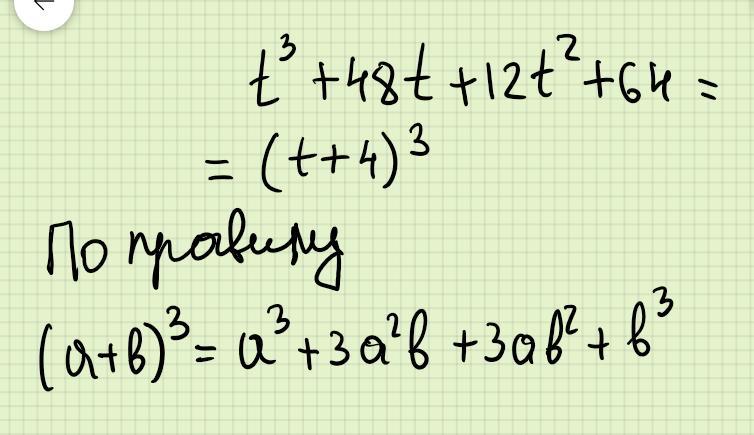 t³ + 48t + 12t² + 64 =
= (t + 4)³
По правилу
(a + b)³ = a³ + 3a²b + 3ab² + b³